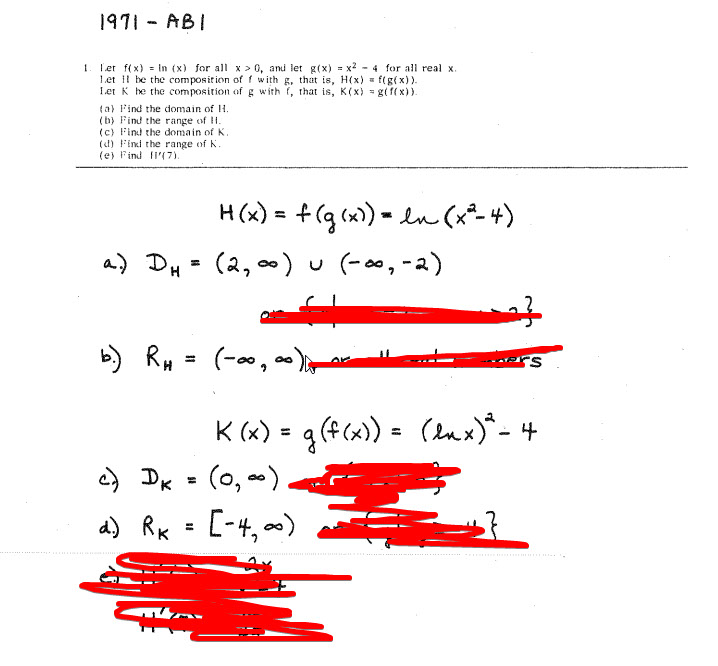 1971 - AB1
1. Let f(x) = ln (x) for all x > 0, and let g(x) = x² - 4 for all real x.
Let H be the composition of f with g, that is, H(x) = f(g(x)).
Let K be the composition of g with f, that is, K(x) = g(f(x)).
(a) Find the domain of H.
(b) Find the range of H.
(c) Find the domain of K.
(d) Find the range of K.
(e) Find H'(7).
H(x) = f(g(x)) = ln(x²-4)
a.) D_H = (2, ∞) ∪ (-∞, -2)
b.) R_H = (-∞, ∞)
K(x) = g(f(x)) = (ln x)² - 4
c.) D_K = (0, ∞)
d.) R_K = [-4, ∞)